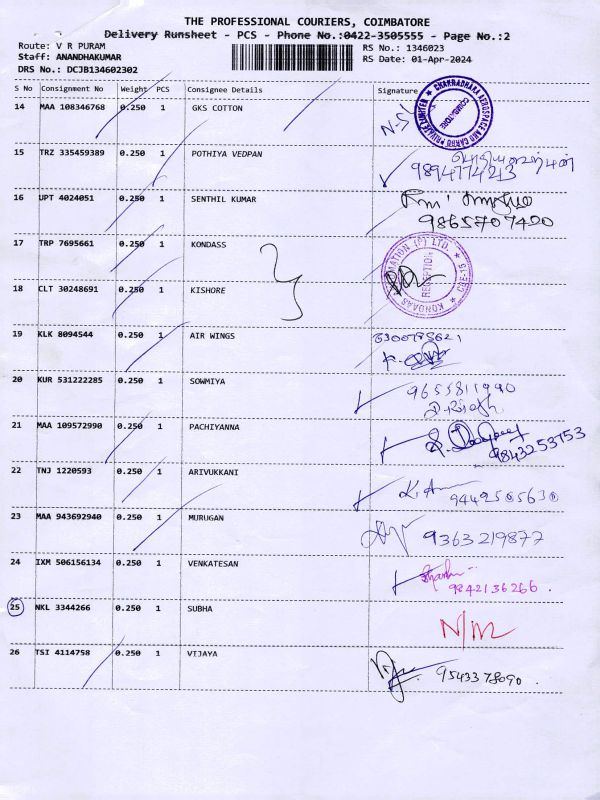 THE PROFESSIONAL COURIERS, COIMBATORE
Delivery Runsheet - PCS - Phone No.:0422-3505555 - Page No.:2
Route: V R PURAM
RS No.: 1346023
Staff: ANANDHAKUMAR
RS Date: 01-Apr-2024
DRS No.: DCJB134602302
S No Consignment No Weight PCS Consignee Details Signature
14 MAA 108346768 0.250 1 GKS COTTON
CHAKRADHARA AEROSPACE AND CARGO PRIVATE LIMITED
COIMBATORE
15 TRZ 335459389 0.250 1 POTHIYA VEDPAN
9894774213
16 UPT 4024051 0.250 1 SENTHIL KUMAR
9865707420
17 TRP 7695661 0.250 1 KONDASS
RECEPTION
KONDAAS
18 CLT 30248691 0.250 1 KISHORE
19 KLK 8094544 0.250 1 AIR WINGS
20 KUR 531222285 0.250 1 SOWMIYA
9655811990
21 MAA 109572990 0.250 1 PACHIYANNA
9843253753
22 TNJ 1220593 0.250 1 ARIVUKKANI
23 MAA 943692940 0.250 1 MURUGAN
9363219877
24 IXM 506156134 0.250 1 VENKATESAN
9842136266
25 NKL 3344266 0.250 1 SUBHA
N/M
26 TSI 4114758 0.250 1 VIJAYA
9543378090